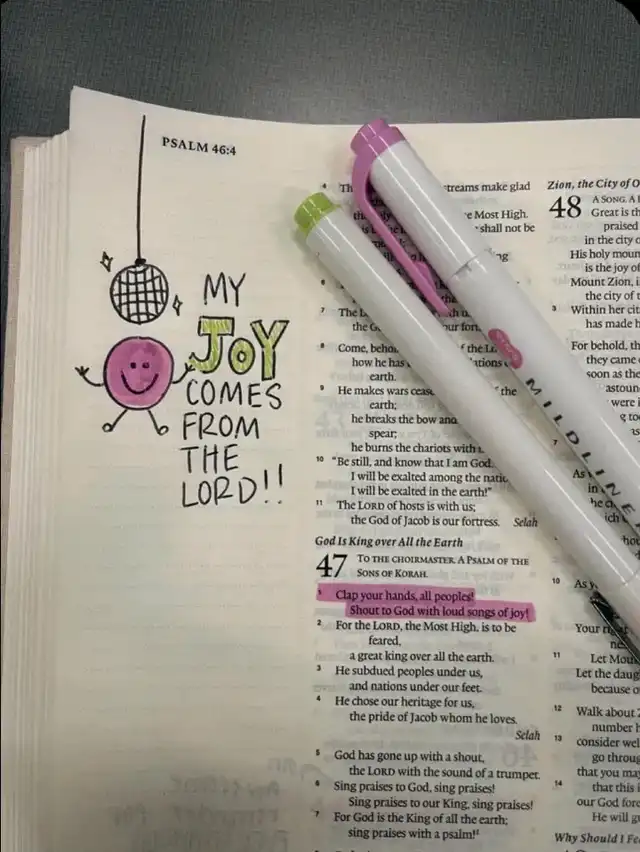 PSALM 46:4
MY
JOY
COMES
FROM
THE
LORD!!
streams make glad
Most High.
shall not be
7 The
the
8 Come,
of the
how he has
earth.
9 He makes wars
the
earth;
he breaks the bow and
spear;
he burns the chariots with
10 “Be still, and know that I am God.
I will be exalted among the
I will be exalted in the earth!”
11 The LORD of hosts is with us;
the God of Jacob is our fortress. Selah
God Is King over All the Earth
47 TO THE CHOIRMASTER. A PSALM OF THE
SONS OF KORAH.
1 Clap your hands, all peoples!
Shout to God with loud songs of joy!
2 For the LORD, the Most High, is to be
feared,
a great king over all the earth.
3 He subdued peoples under us,
and nations under our feet.
4 He chose our heritage for us,
the pride of Jacob whom he loves.
Selah
5 God has gone up with a shout,
the LORD with the sound of a trumpet.
6 Sing praises to God, sing praises!
Sing praises to our King, sing praises!
7 For God is the King of all the earth;
sing praises with a psalm!
MILDLINE
Zion, the City of
48 A SONG. A
Great is
praised
in the city
His holy
is the joy of
Mount Zion, i
the city of
3 Within her
has made
For behold,
they came
soon as the
were
As
10 As
Your
11 Let
Let the
because
12 Walk about
number
13 consider
go
that you may
14 that this
our God
He will
Why Should I